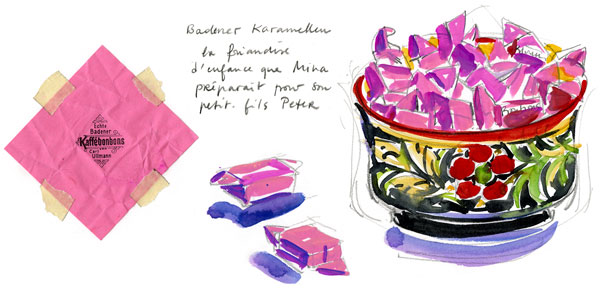 Badener Karamellen
la friandise
d'enfance que Mina
préparait pour son
petit-fils Peter
Echte
Badener
Kaffébonbons
von
Carl
Ullmann